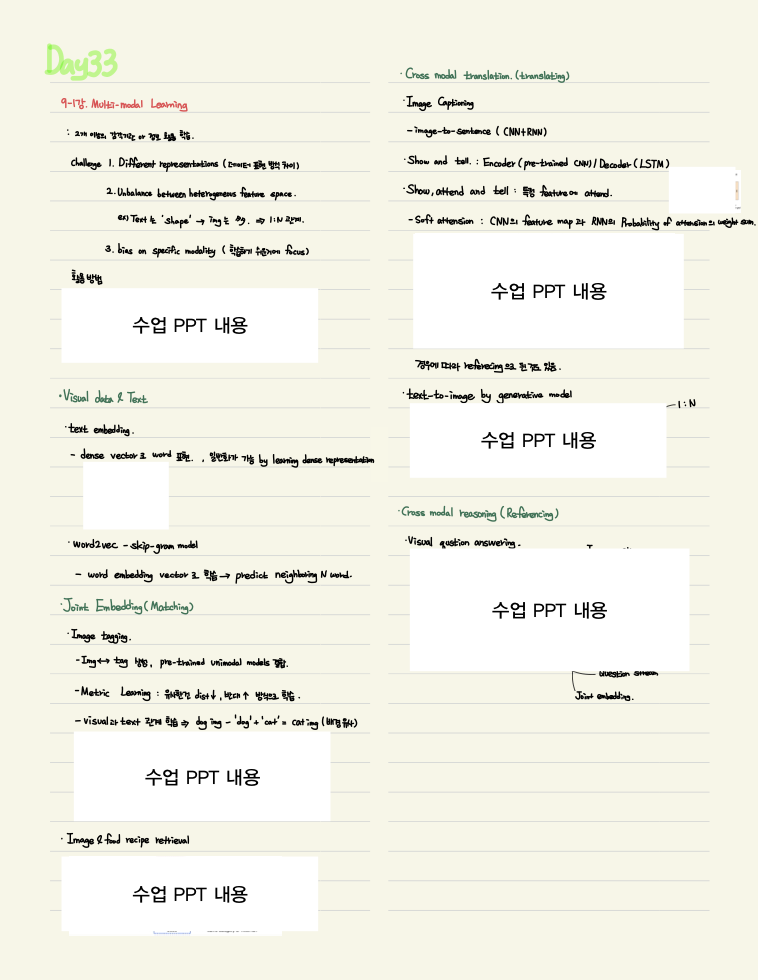 Day33
9-1강. Multi-modal Learning
: 2개 이상의 감각기관 or 정보 활용 학습.
Challenge 1. Different representations (데이터 표현 방식 차이)
2. Unbalance between heterogeneous feature space.
ex) Text는 'shape' → img는 多. ⇒ 1:N 관계.
3. bias on specific modality ( 학습하기 쉬운거에 focus)
활용 방법
수업 PPT 내용
·Visual data & Text
·text embedding.
- dense vector로 word 표현. , 일반화가 가능 by learning dense representation
·word2vec - skip-gram model
- word embedding vector로 학습 → predict neighboring N word.
·Joint Embedding(Matching)
·Image tagging.
- Img ↔ tag 방법, pre-trained unimodal models 결합.
- Metric Learning : 유사한건 dist↓, 반대↑ 방식으로 학습.
- visual과 text 관계 학습 ⇒ dog img - 'dog' + 'cat' = cat img (배경 유사)
수업 PPT 내용
·Image & food recipe retrieval
수업 PPT 내용
·Cross modal translation.(translating)
·Image Captioning
- image-to-sentence ( CNN+RNN)
·Show and tell. : Encoder (pre-trained CNN) / Decoder (LSTM)
·Show, attend and tell : 특정 feature에 attend.
- Soft attension : CNN의 feature map과 RNN의 Probability of attension의 weight sum.
수업 PPT 내용
경우에 따라 referecing으로 된 것도 있음.
·text-to-image by generative model
1:N
수업 PPT 내용
·Cross modal reasoning (Referencing)
·Visual qustion answering.
수업 PPT 내용
Question stream
Joint embedding.